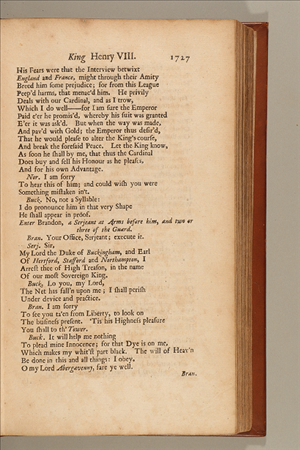 King Henry VIII. 1727
His Fears were that the Interview betwixt
England and France, might through their Amity
Breed him some prejudice; for from this League
Peep'd harms, that menac'd him. He privily
Deals with our Cardinal, and as I trow,
Which I do well——for I am sure the Emperor
Paid e'er he promis'd, whereby his suit was granted
E'er it was ask'd. But when the way was made,
And pav'd with Gold; the Emperor thus desir'd,
That he would please to alter the King's course,
And break the foresaid Peace. Let the King know,
As soon he shall by me, that thus the Cardinal
Does buy and sell his Honour as he pleases,
And for his own Advantage.
Nor. I am sorry
To hear this of him; and could wish you were
Something mistaken in't.
Buck. No, not a Syllable:
I do pronounce him in that very Shape
He shall appear in proof.
Enter Brandon, a Serjeant at Arms before him, and two or
three of the Guard.
Bran. Your Office, Serjeant; execute it.
Serj. Sir,
My Lord the Duke of Buckingham, and Earl
Of Hertford, Stafford and Northampton, I
Arrest thee of High Treason, in the name
Of our most Sovereign King.
Buck. Lo you, my Lord,
The Net has fall'n upon me; I shall perish
Under device and practice.
Bran. I am sorry
To see you ta'en from Liberty, to look on
The business present. 'Tis his Highness pleasure
You shall to th' Tower.
Buck. It will help me nothing
To plead mine Innocence; for that Dye is on me,
Which makes my whit'st part black. The will of Heav'n
Be done in this and all things: I obey.
O my Lord Abergavenny, fare ye well.
Bran.